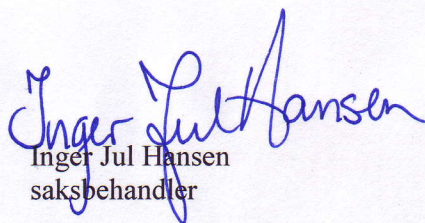 Inger Jul Hansen
Inger Jul Hansen
saksbehandler